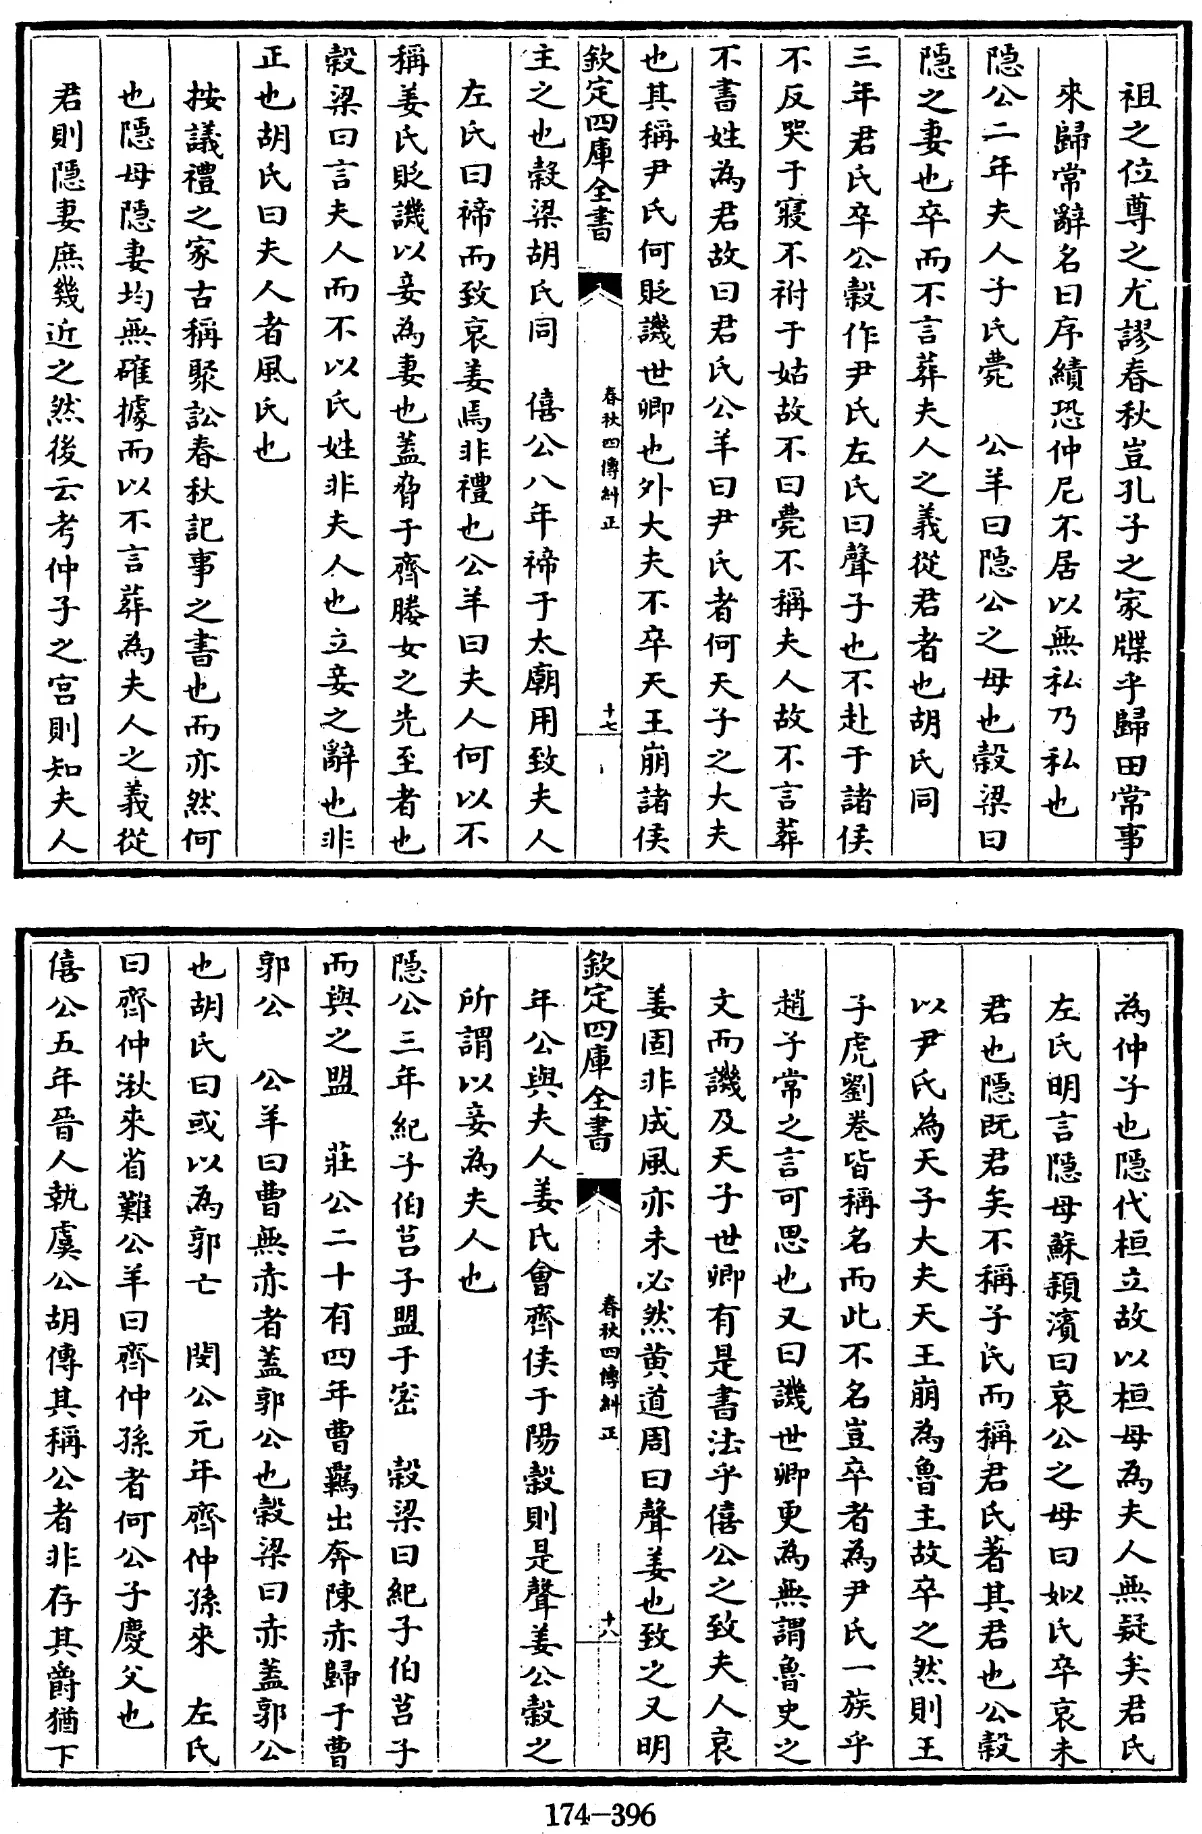 祖之位尊之尤謬春秋豈孔子之家牒乎歸田常事
來歸常辭名曰序績恐仲尼不居以無私乃私也
隱公二年夫人子氏薨　公羊曰隱公之母也穀梁曰
隱之妻也卒而不言葬夫人之義從君者也胡氏同
三年君氏卒公穀作尹氏左氏曰聲子也不赴于諸侯
不反哭于寢不祔于姑故不曰薨不稱夫人故不言葬
不書姓為君故曰君氏公羊曰尹氏者何天子之大夫
也其稱尹氏何貶譏世卿也外大夫不卒天王崩諸侯
欽定四庫全書　春秋四傳糾正　十七
主之也穀梁胡氏同　僖公八年禘于太廟用致夫人
左氏曰禘而致哀姜焉非禮也公羊曰夫人何以不
稱姜氏貶譏以妾為妻也蓋脅于齊媵女之先至者也
穀梁曰言夫人而不以氏姓非夫人也立妾之辭也非
正也胡氏曰夫人者風氏也
按議禮之家古稱聚訟春秋記事之書也而亦然何
也隱母隱妻均無確據而以不言葬為夫人之義從
君則隱妻庶幾近之然後云考仲子之宮則知夫人
為仲子也隱代桓立故以桓母為夫人無疑矣君氏
左氏明言隱母蘇潁濱曰哀公之母曰姒氏卒哀未
君也隱既君矣不稱子氏而稱君氏著其君也公穀
以尹氏為天子大夫天王崩為魯主故卒之然則王
子虎劉卷皆稱名而此不名豈卒者為尹氏一族乎
趙子常之言可思也又曰譏世卿更為無謂魯史之
文而譏及天子世卿有是書法乎僖公之致夫人哀
姜固非成風亦未必然黃道周曰聲姜也致之又明
欽定四庫全書　春秋四傳糾正　十八
年公與夫人姜氏會齊侯于陽穀則是聲姜公穀之
所謂以妾為夫人也
隱公三年紀子伯莒子盟于密　穀梁曰紀子伯莒子
而與之盟　莊公二十有四年曹羈出奔陳赤歸于曹
郭公　公羊曰曹無赤者蓋郭公也穀梁曰赤蓋郭公
也胡氏曰或以為郭亡　閔公元年齊仲孫來　左氏
曰齊仲湫來省難公羊曰齊仲孫者何公子慶父也
僖公五年晉人執虞公胡傳其稱公者非存其爵猶下
174-396